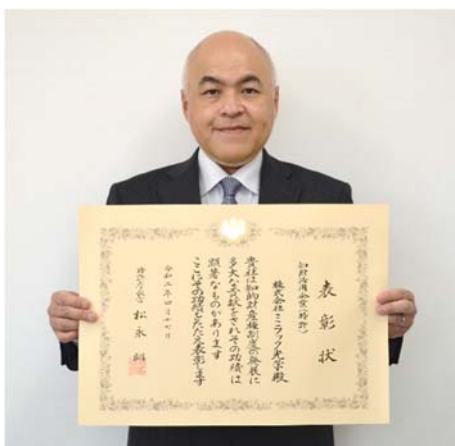 表彰状
知財活用企業(特許)
株式会社ミラック光学殿
貴社は知的財産権制度の発展に
多大な貢献をされその功績は
顕著なものがあります
ここにその功績をたたえ表彰します
令和二年四月十七日
特許庁長官 松永 明